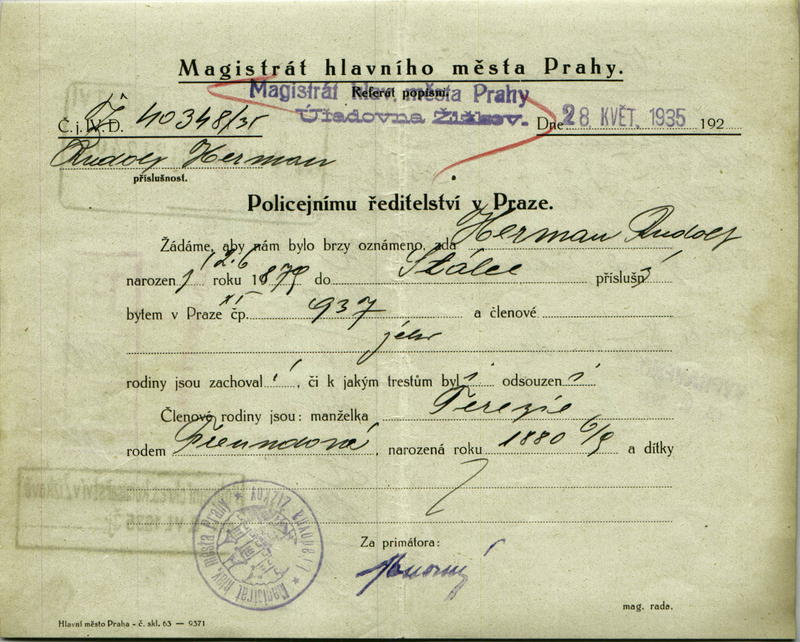 Magistrát hlavního města Prahy.
Referát popisní.
Magistrát hlav. města Prahy
Úřadovna Žižkov.
Č. j. IV. D. 40348/35 Dne 28 KVĚT. 1935 192
Rudolf Herman
příslušnost.
Policejnímu ředitelství v Praze.
Žádáme, aby nám bylo brzy oznámeno, zda Herman Rudolf
narozen ý 12.6 roku 1879 do příslušn í
bytem v Praze XI čp. 937 a členové
jeho
rodiny jsou zachoval i, či k jakým trestům byl i odsouzen i
Členové rodiny jsou: manželka Terezie
rodem Freundová, narozená roku 1880 6/9 a dítky
Za primátora:
mag. rada.
* Magistrát hlav. města Prahy * ÚŘADOVNA ŽIŽKOV
Hlavní město Praha - č. skl. 63 — 9371